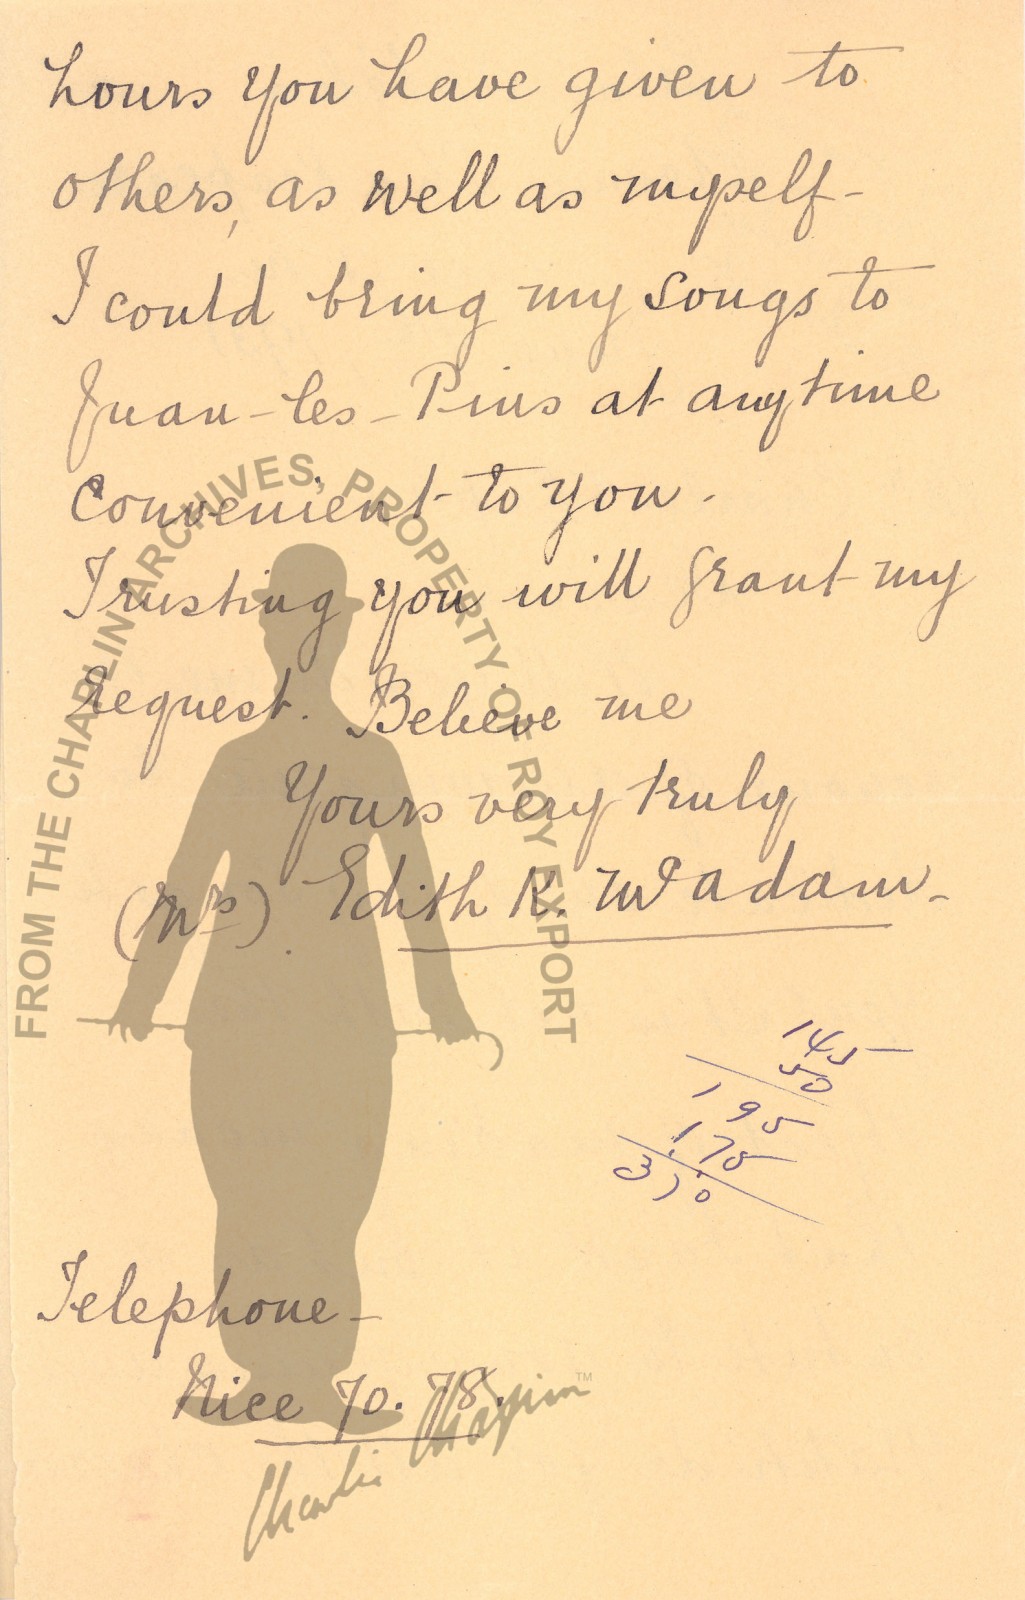 hours you have given to
others, as well as myself-
I could bring my songs to
Juan-les-Pins at anytime
convenient to you.
Trusting you will grant my
request. Believe me
Yours very truly
(Mrs) Edith K. McAdam-
145
50
195
175
370
Telephone-
Nice 70.78.
FROM THE CHAPLIN ARCHIVES, PROPERTY OF ROY EXPORT
Charlie Chaplin™